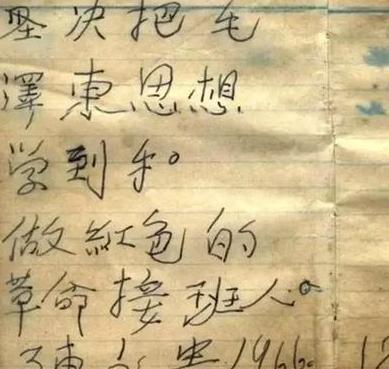 坚决把毛
澤東思想
学到手。
做紅色的
革命接班人。
陳永貴1966. 12